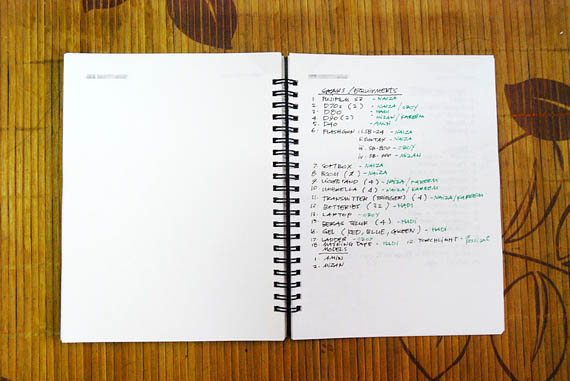 GEARS / EQUIPMENTS
1. FUJIFILM S2 - NAIZA
2. D70s (2) - NAIZA / OBOY
3. D80 - HADI
4. D90 (2) - MIZAN / KAREEM
5. D40 - AMIN
6. FLASHGUN i. SB-24 - NAIZA
ii. - NAIZA
iii. SB-800 - OBOY
iv. SB-900 - MIZAN
7. SOFTBOX - NAIZA
8. (2) - NAIZA
9. LIGHTSTAND (4) - NAIZA / KAREEM
10. UMBRELLA (4) - NAIZA / KAREEM
11. TRANSMITTER (TRIGGER) (4) - NAIZA / KAREEM
12. BATTERIES (32) - HADI
13. LAPTOP - OBOY
15. BEKAS TELUR (4) - HADI
16. GEL (RED, BLUE, GREEN) - HADI
17. LADDER - OBOY
18. MASKING TAPE - HADI 19. TORCHLIGHT -
MODELS
1. AMIN
2. MIZAN